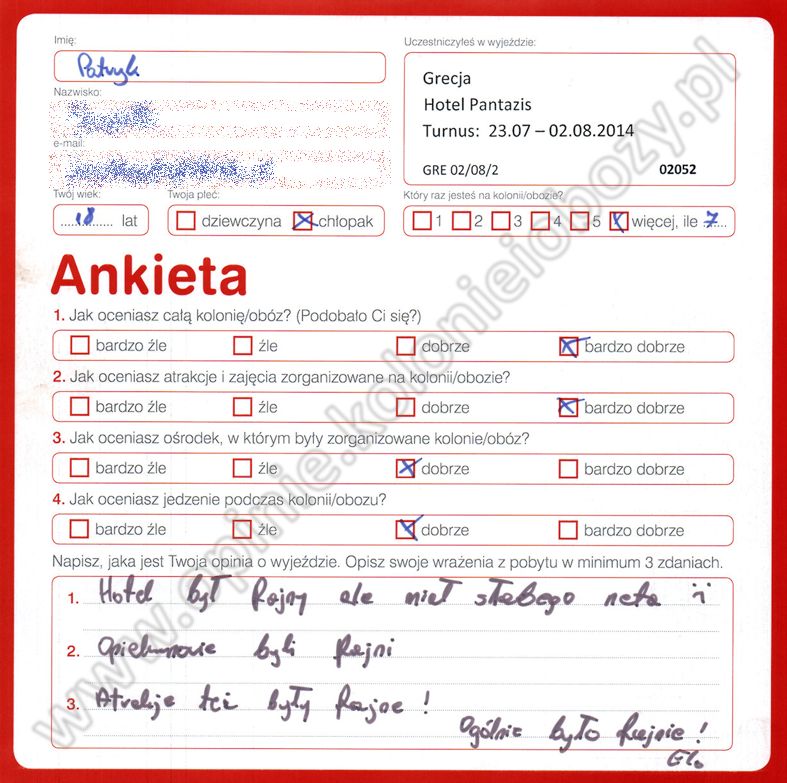 Imię:
Patryk
Nazwisko:
e-mail:
Twój wiek:
18 lat
Twoja płeć:
dziewczyna
chłopak
Uczestniczyłeś w wyjeździe:
Grecja
Hotel Pantazis
Turnus: 23.07 – 02.08.2014
GRE 02/08/2 02052
Który raz jesteś na kolonii/obozie?
1 2 3 4 5 więcej, ile 7
Ankieta
1. Jak oceniasz całą kolonię/obóz? (Podobało Ci się?)
bardzo źle źle dobrze bardzo dobrze
2. Jak oceniasz atrakcje i zajęcia zorganizowane na kolonii/obozie?
bardzo źle źle dobrze bardzo dobrze
3. Jak oceniasz ośrodek, w którym były zorganizowane kolonie/obóz?
bardzo źle źle dobrze bardzo dobrze
4. Jak oceniasz jedzenie podczas kolonii/obozu?
bardzo źle źle dobrze bardzo dobrze
Napisz, jaka jest Twoja opinia o wyjeździe. Opisz swoje wrażenia z pobytu w minimum 3 zdaniach.
1. Hotel był fajny ale miał słabego neta
2. Opiekunowie byli fajni
3. Atrakcje też były fajne!
Ogólnie było fajnie!
Elo
www.opinie.kolonieiobozy.pl